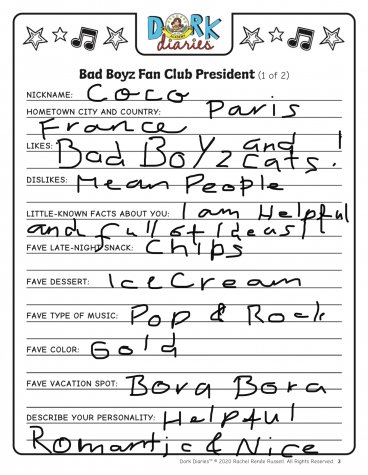 DORK
diaries
Bad Boyz Fan Club President (1 of 2)
NICKNAME: Coco
HOMETOWN CITY AND COUNTRY: Paris
France
LIKES: Bad Boyz and Cats!
DISLIKES: Mean People
LITTLE-KNOWN FACTS ABOUT YOU: I am Helpful
and full of Ideas!
FAVE LATE-NIGHT SNACK: Chips
FAVE DESSERT: Ice Cream
FAVE TYPE OF MUSIC: Pop & Rock
FAVE COLOR: Gold
FAVE VACATION SPOT: Bora Bora
DESCRIBE YOUR PERSONALITY: Helpful
Romantic & Nice
Dork Diaries™ © 2020 Rachel Renée Russell. All Rights Reserved. 3